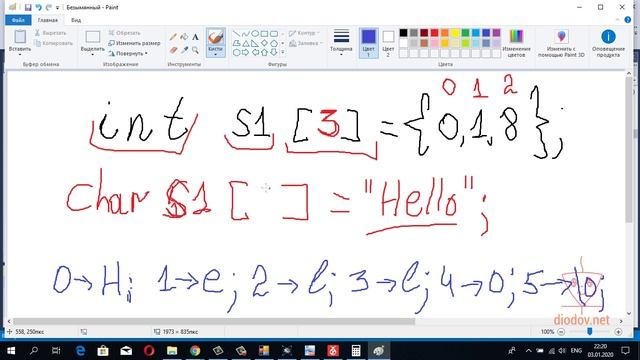 Безымянный - Paint
Файл Главная Вид
Вставить Вырезать Копировать Выделить Обрезать Изменить размер Повернуть Кисти Контур Заливка Толщина Цвет 1 Цвет 2 Изменение цветов Изменить с помощью Paint 3D Оповещение о продукте
Буфер обмена Изображение Инструменты Фигуры Цвета
0 1 2
int S1 [3] = {0,1,8};
Char S1 [ ] = "Hello";
0→H; 1→e; 2→l; 3→l; 4→0; 5→\0;
diodov.net
558, 250пкс 1973 × 835пкс 100%
22:20
03.01.2020